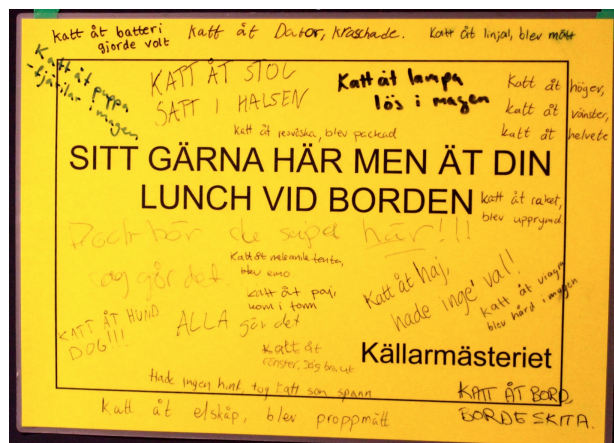 Katt åt batteri
gjorde volt
Katt åt Dator, kraschade.
Katt åt linjal, blev mätt
Katt åt puppa
fjärilar i magen
KATT ÅT STOL
SATT I HALSEN
Katt åt lampa
lös i magen
Katt åt höger,
katt åt vänster,
katt åt helvete
katt åt resväska, blev packad
SITT GÄRNA HÄR MEN ÄT DIN
LUNCH VID BORDEN
Katt åt raket,
blev upprymd
Dock bör de supa här!!!
jag gör det
Katt åt mekaniktenta,
blev emo
katt åt paj,
kom i form
Katt åt haj,
hade inge' val!
katt åt viagra
blev hård i magen
KATT ÅT HUND
DOG!!!
ALLA gör det
Katt åt
fönster,
Källarmästeriet
Hade ingen hink, tog katt som spann
KATT ÅT BORD
BORDE SKITA.
Katt åt elskåp, blev proppmätt